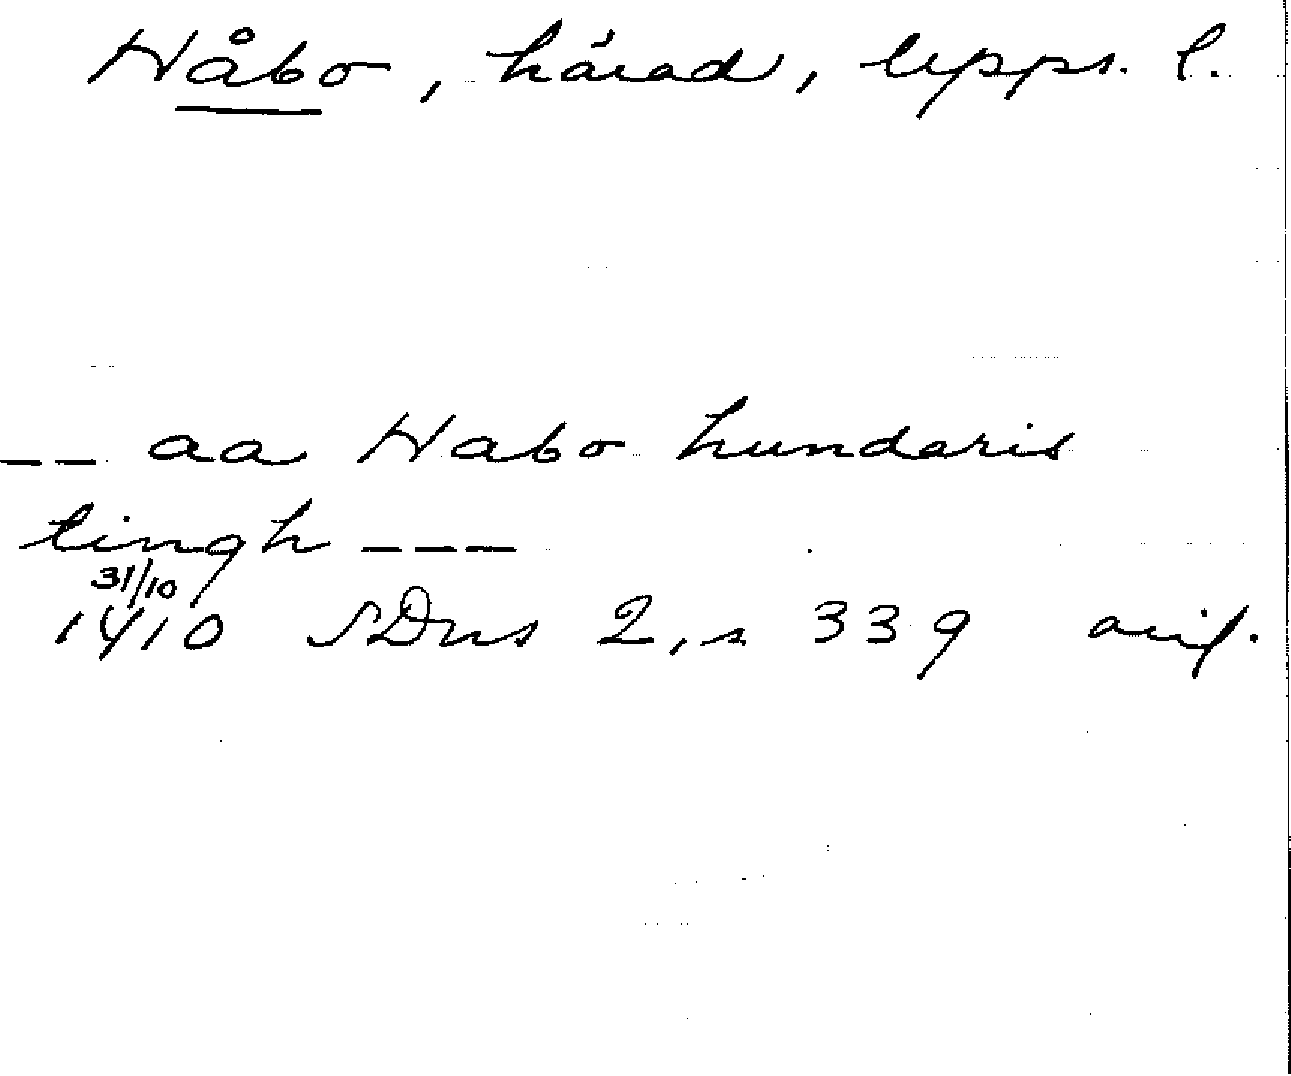 Håbo, härad, Upps. l.
-- aa Habo hundaris
tingh ---
31/10
1410 SDns 2, s 339 avs.